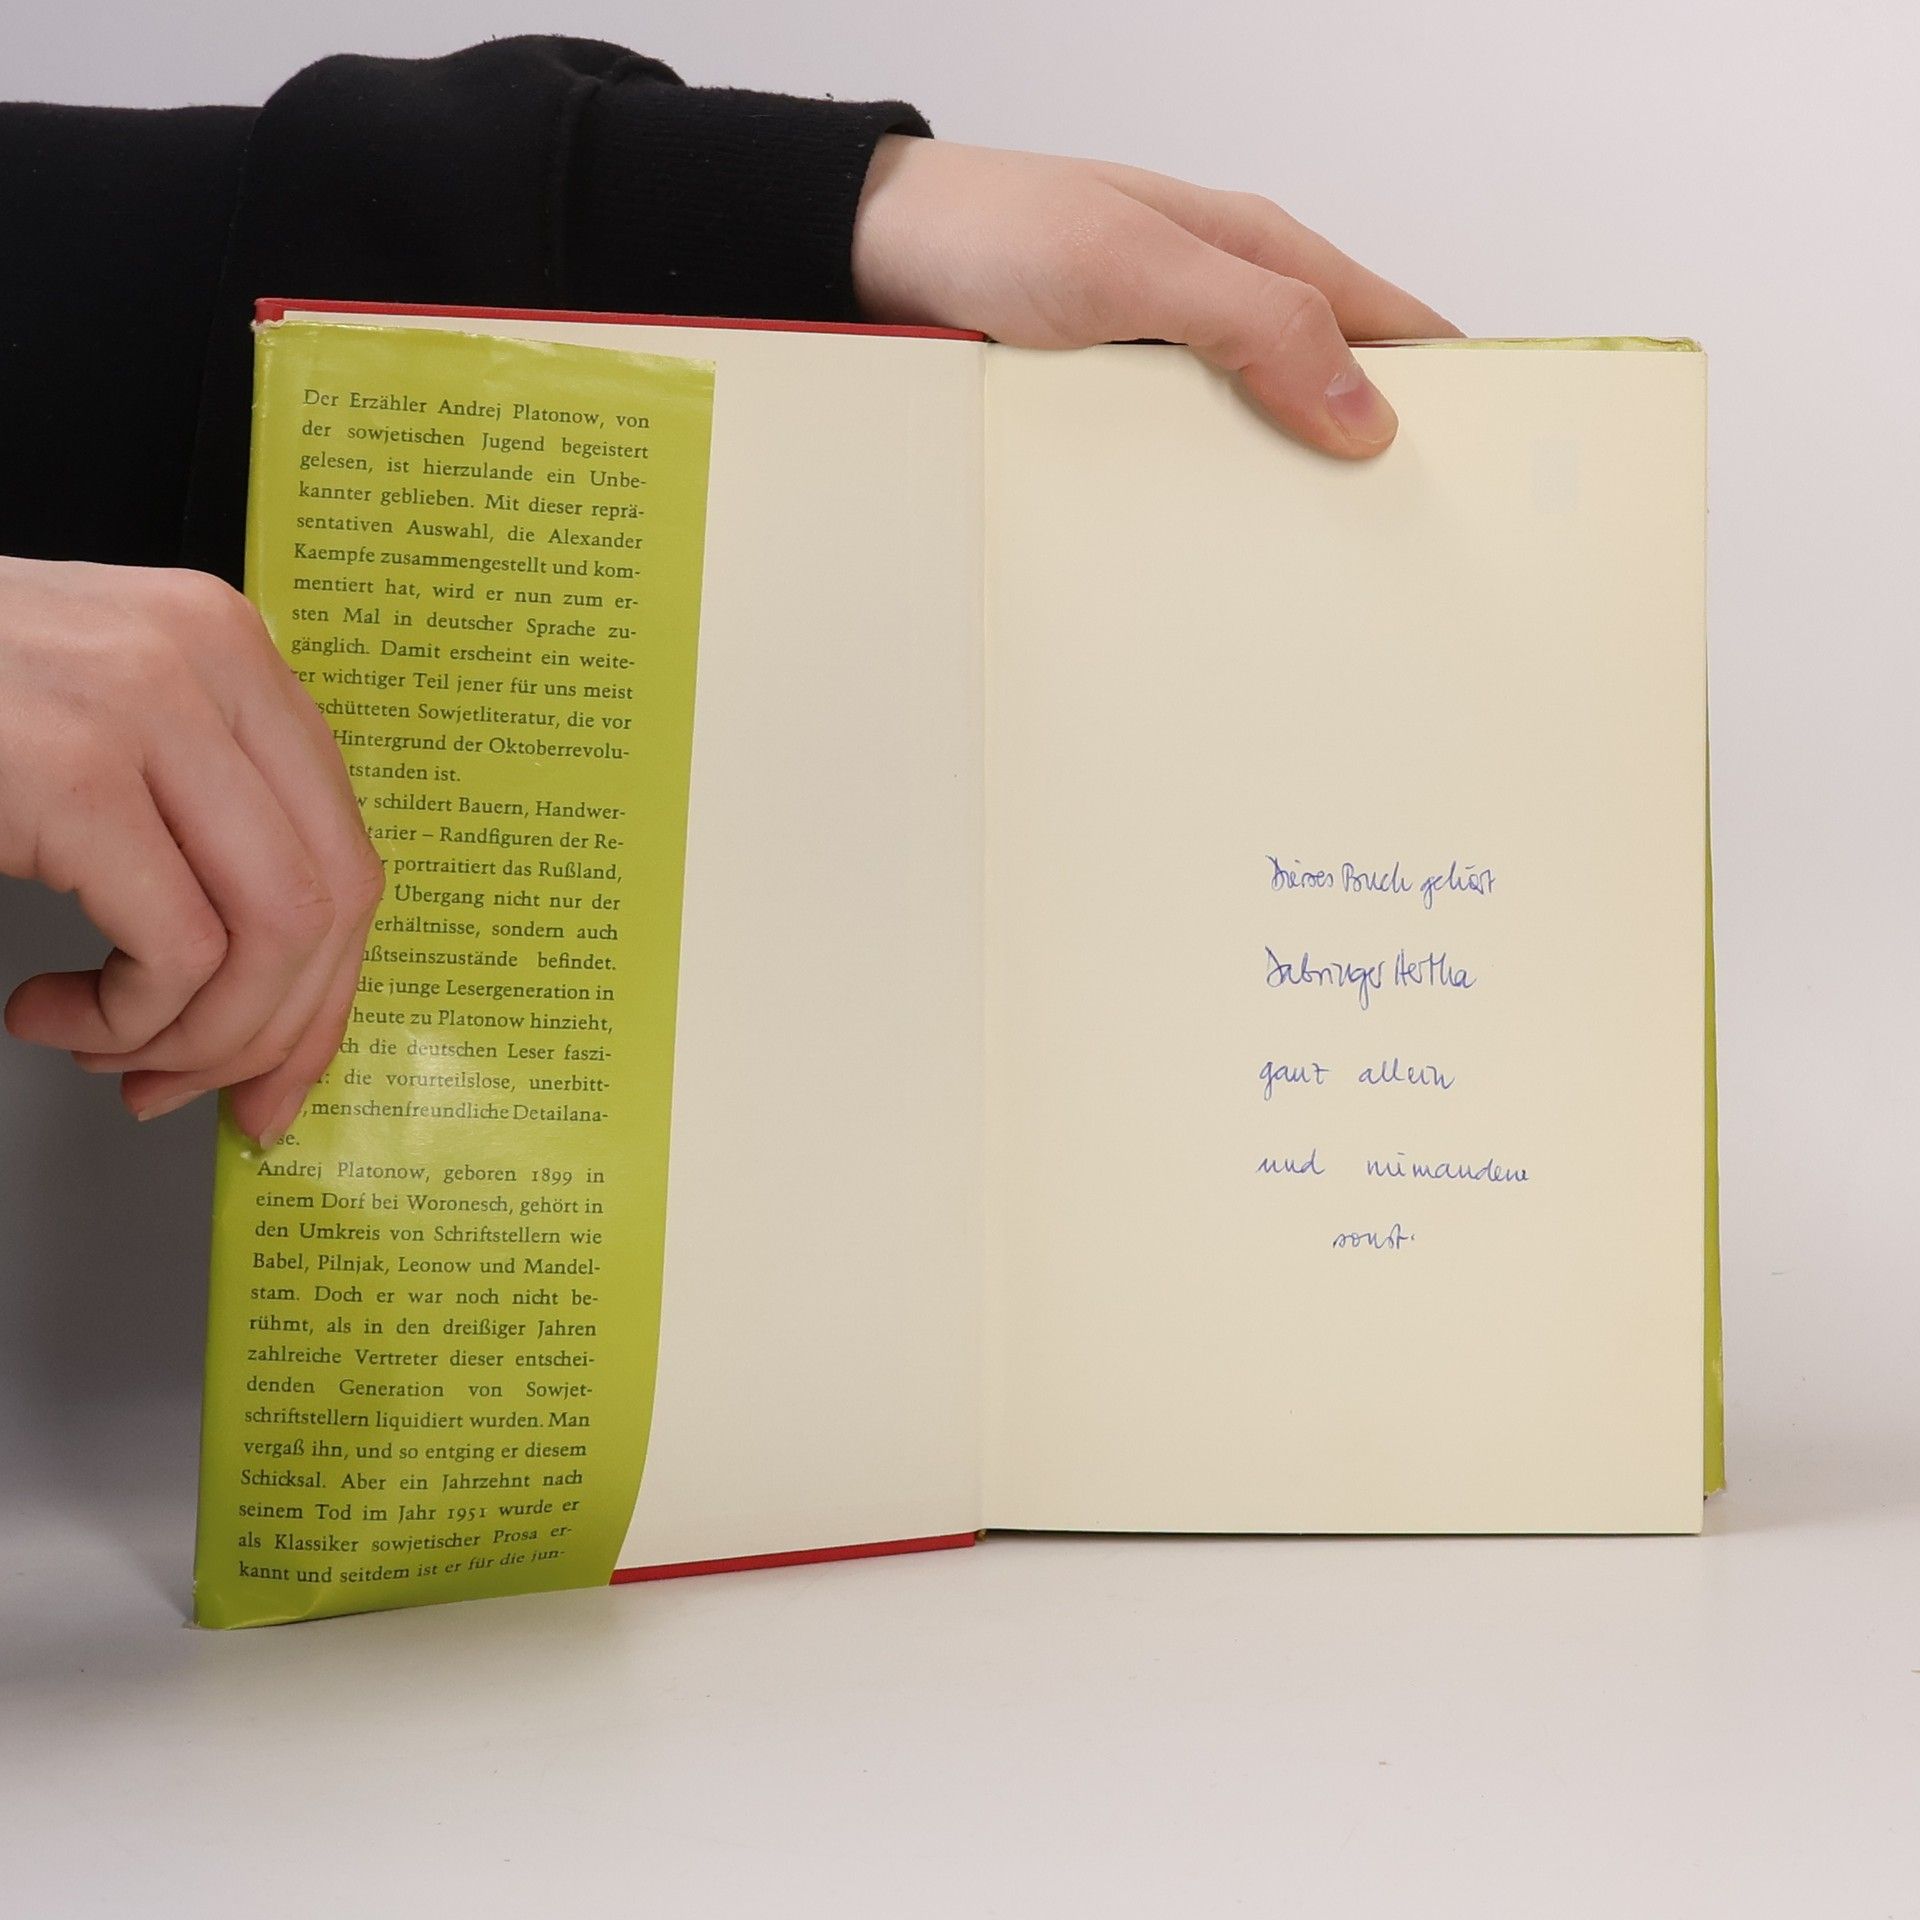 Der Erzähler Andrej Platonow, von
der sowjetischen Jugend begeistert
gelesen, ist hierzulande ein Unbe-
kannter geblieben. Mit dieser reprä-
sentativen Auswahl, die Alexander
Kaempfe zusammengestellt und kom-
mentiert hat, wird er nun zum er-
sten Mal in deutscher Sprache zu-
gänglich. Damit erscheint ein weite-
rer wichtiger Teil jener für uns meist
schütteten Sowjetliteratur, die vor
Hintergrund der Oktoberrevolu-
tstanden ist.
w schildert Bauern, Handwer-
tarier – Randfiguren der Re-
r portraitiert das Rußland,
Übergang nicht nur der
erhältnisse, sondern auch
ußtseinszustände befindet.
die junge Lesergeneration in
heute zu Platonow hinzieht,
ch die deutschen Leser faszi-
r: die vorurteilslose, unerbitt-
, menschenfreundliche Detailana-
se.
Andrej Platonow, geboren 1899 in
einem Dorf bei Woronesch, gehört in
den Umkreis von Schriftstellern wie
Babel, Pilnjak, Leonow und Mandel-
stam. Doch er war noch nicht be-
rühmt, als in den dreißiger Jahren
zahlreiche Vertreter dieser entschei-
denden Generation von Sowjet-
schriftstellern liquidiert wurden. Man
vergaß ihn, und so entging er diesem
Schicksal. Aber ein Jahrzehnt nach
seinem Tod im Jahr 1951 wurde er
als Klassiker sowjetischer Prosa er-
kannt und seitdem ist er für die jun-
Dieses Buch gehört
Dabringer Hertha
ganz allein
und niemandem
sonst.